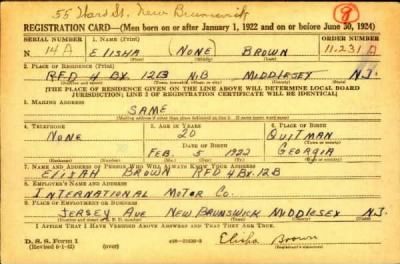 55 Ward St, New Brunswick
REGISTRATION CARD—(Men born on or after January 1, 1922 and on or before June 30, 1924)
SERIAL NUMBER 1. NAME (Print) ORDER NUMBER
N 14A ELISHA NONE BROWN 11,231 A
(First) (Middle) (Last)
2. PLACE OF RESIDENCE (Print)
RFD 4 BX. 12B N.B MIDDLESEX N.J.
(THE PLACE OF RESIDENCE GIVEN ON THE LINE ABOVE WILL DETERMINE LOCAL BOARD
JURISDICTION; LINE 2 OF REGISTRATION CERTIFICATE WILL BE IDENTICAL)
3. MAILING ADDRESS
SAME
(Mailing address if other than place indicated on line 2. If same insert word same)
4. TELEPHONE 5. AGE IN YEARS 6. PLACE OF BIRTH
NONE 20 QUITMAN
DATE OF BIRTH
FEB. 5 1922 GEORGIA
7. NAME AND ADDRESS OF PERSON WHO WILL ALWAYS KNOW YOUR ADDRESS
ELIJAH BROWN RFD 4 BX. 12B
8. EMPLOYER'S NAME AND ADDRESS
INTERNATIONAL MOTOR CO.
9. PLACE OF EMPLOYMENT OR BUSINESS
JERSEY AVE NEW BRUNSWICK MIDDLESEX N.J.
I AFFIRM THAT I HAVE VERIFIED ABOVE ANSWERS AND THAT THEY ARE TRUE.
D. S. S. Form 1
(Revised 6-1-42) (over) Elisha Brown